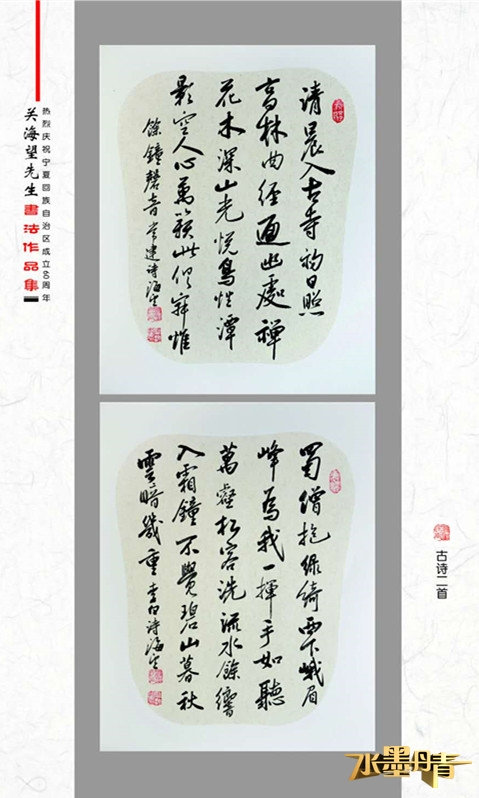 热烈庆祝宁夏回族自治区成立60周年
关海望先生書法作品集
清晨入古寺初日照
高林曲径通幽處禅
花木深山光悦鳥性潭
影空人心萬籟此俱寂惟
餘鐘磬音 常建诗海
蜀僧抱绿绮西下峨眉
峰為我一揮手如聽
萬壑松客洗流水餘響
入霜鐘不覺碧山暮秋
雲暗幾重 李白诗海
古诗二首
水墨丹青